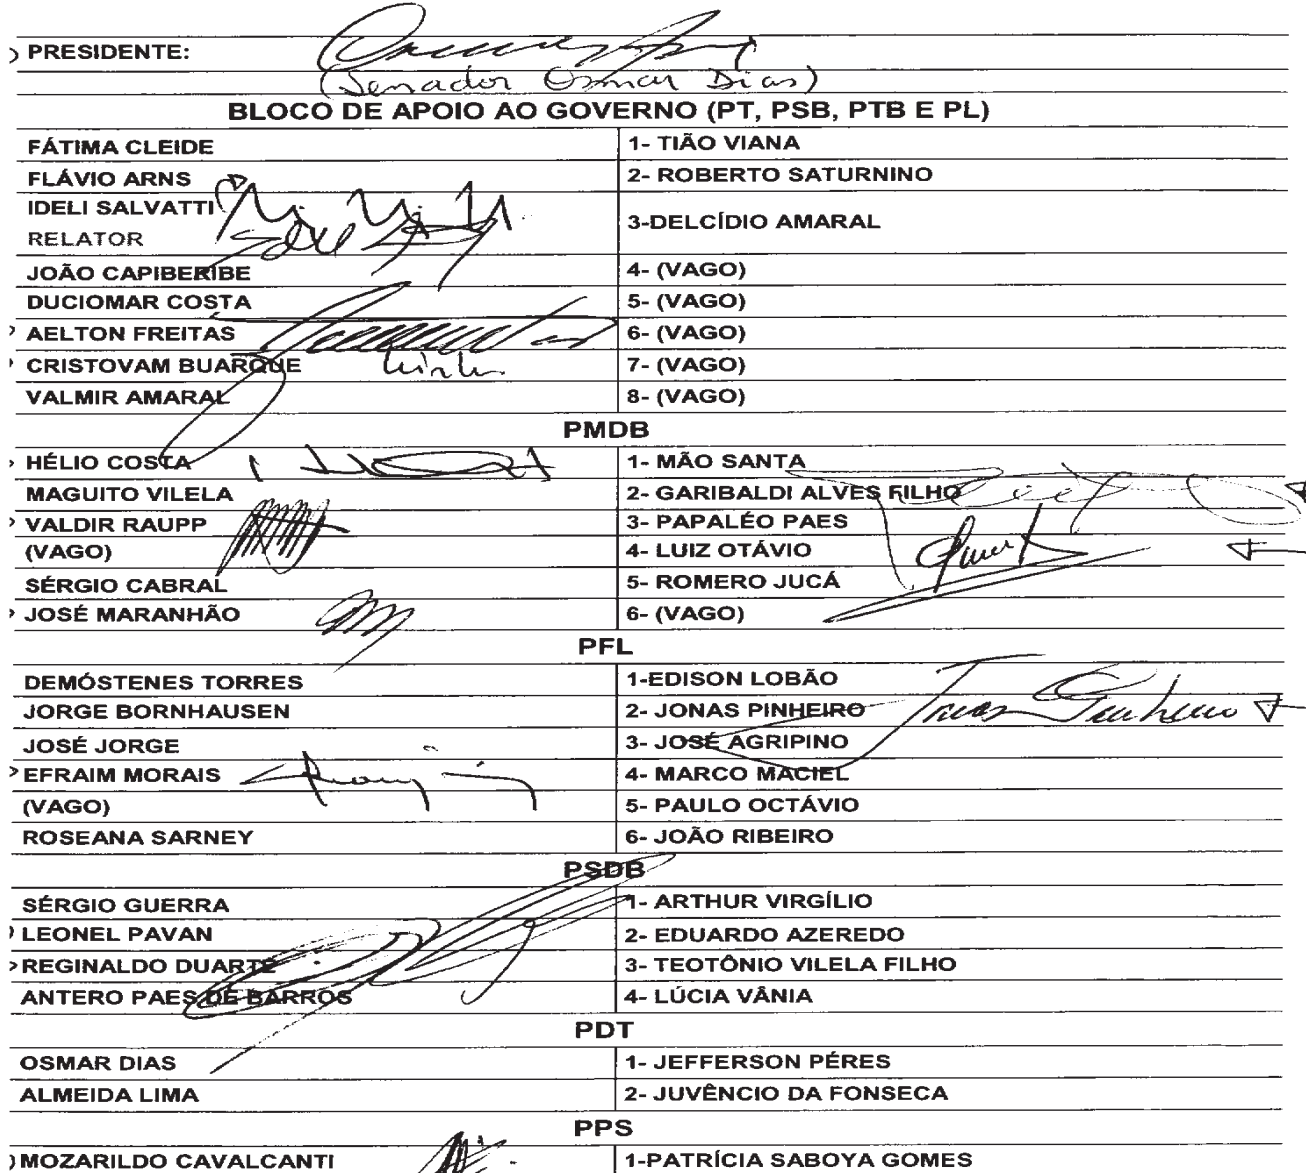 PRESIDENTE:
(Senador Osmar Dias)
BLOCO DE APOIO AO GOVERNO (PT, PSB, PTB E PL)
FÁTIMA CLEIDE 1- TIÃO VIANA
FLÁVIO ARNS 2- ROBERTO SATURNINO
IDELI SALVATTI
RELATOR 3-DELCÍDIO AMARAL
JOÃO CAPIBERIBE 4- (VAGO)
DUCIOMAR COSTA 5- (VAGO)
AELTON FREITAS 6- (VAGO)
CRISTOVAM BUARQUE 7- (VAGO)
VALMIR AMARAL 8- (VAGO)
PMDB
HÉLIO COSTA 1- MÃO SANTA
MAGUITO VILELA 2- GARIBALDI ALVES FILHO
VALDIR RAUPP 3- PAPALÉO PAES
(VAGO) 4- LUIZ OTÁVIO
SÉRGIO CABRAL 5- ROMERO JUCÁ
JOSÉ MARANHÃO 6- (VAGO)
PFL
DEMÓSTENES TORRES 1-EDISON LOBÃO
JORGE BORNHAUSEN 2- JONAS PINHEIRO Jonas Pinheiro
JOSÉ JORGE 3- JOSÉ AGRIPINO
EFRAIM MORAIS 4- MARCO MACIEL
(VAGO) 5- PAULO OCTÁVIO
ROSEANA SARNEY 6- JOÃO RIBEIRO
PSDB
SÉRGIO GUERRA 1- ARTHUR VIRGÍLIO
LEONEL PAVAN 2- EDUARDO AZEREDO
REGINALDO DUARTE 3- TEOTÔNIO VILELA FILHO
ANTERO PAES DE BARROS 4- LÚCIA VÂNIA
PDT
OSMAR DIAS 1- JEFFERSON PÉRES
ALMEIDA LIMA 2- JUVÊNCIO DA FONSECA
PPS
MOZARILDO CAVALCANTI 1-PATRÍCIA SABOYA GOMES